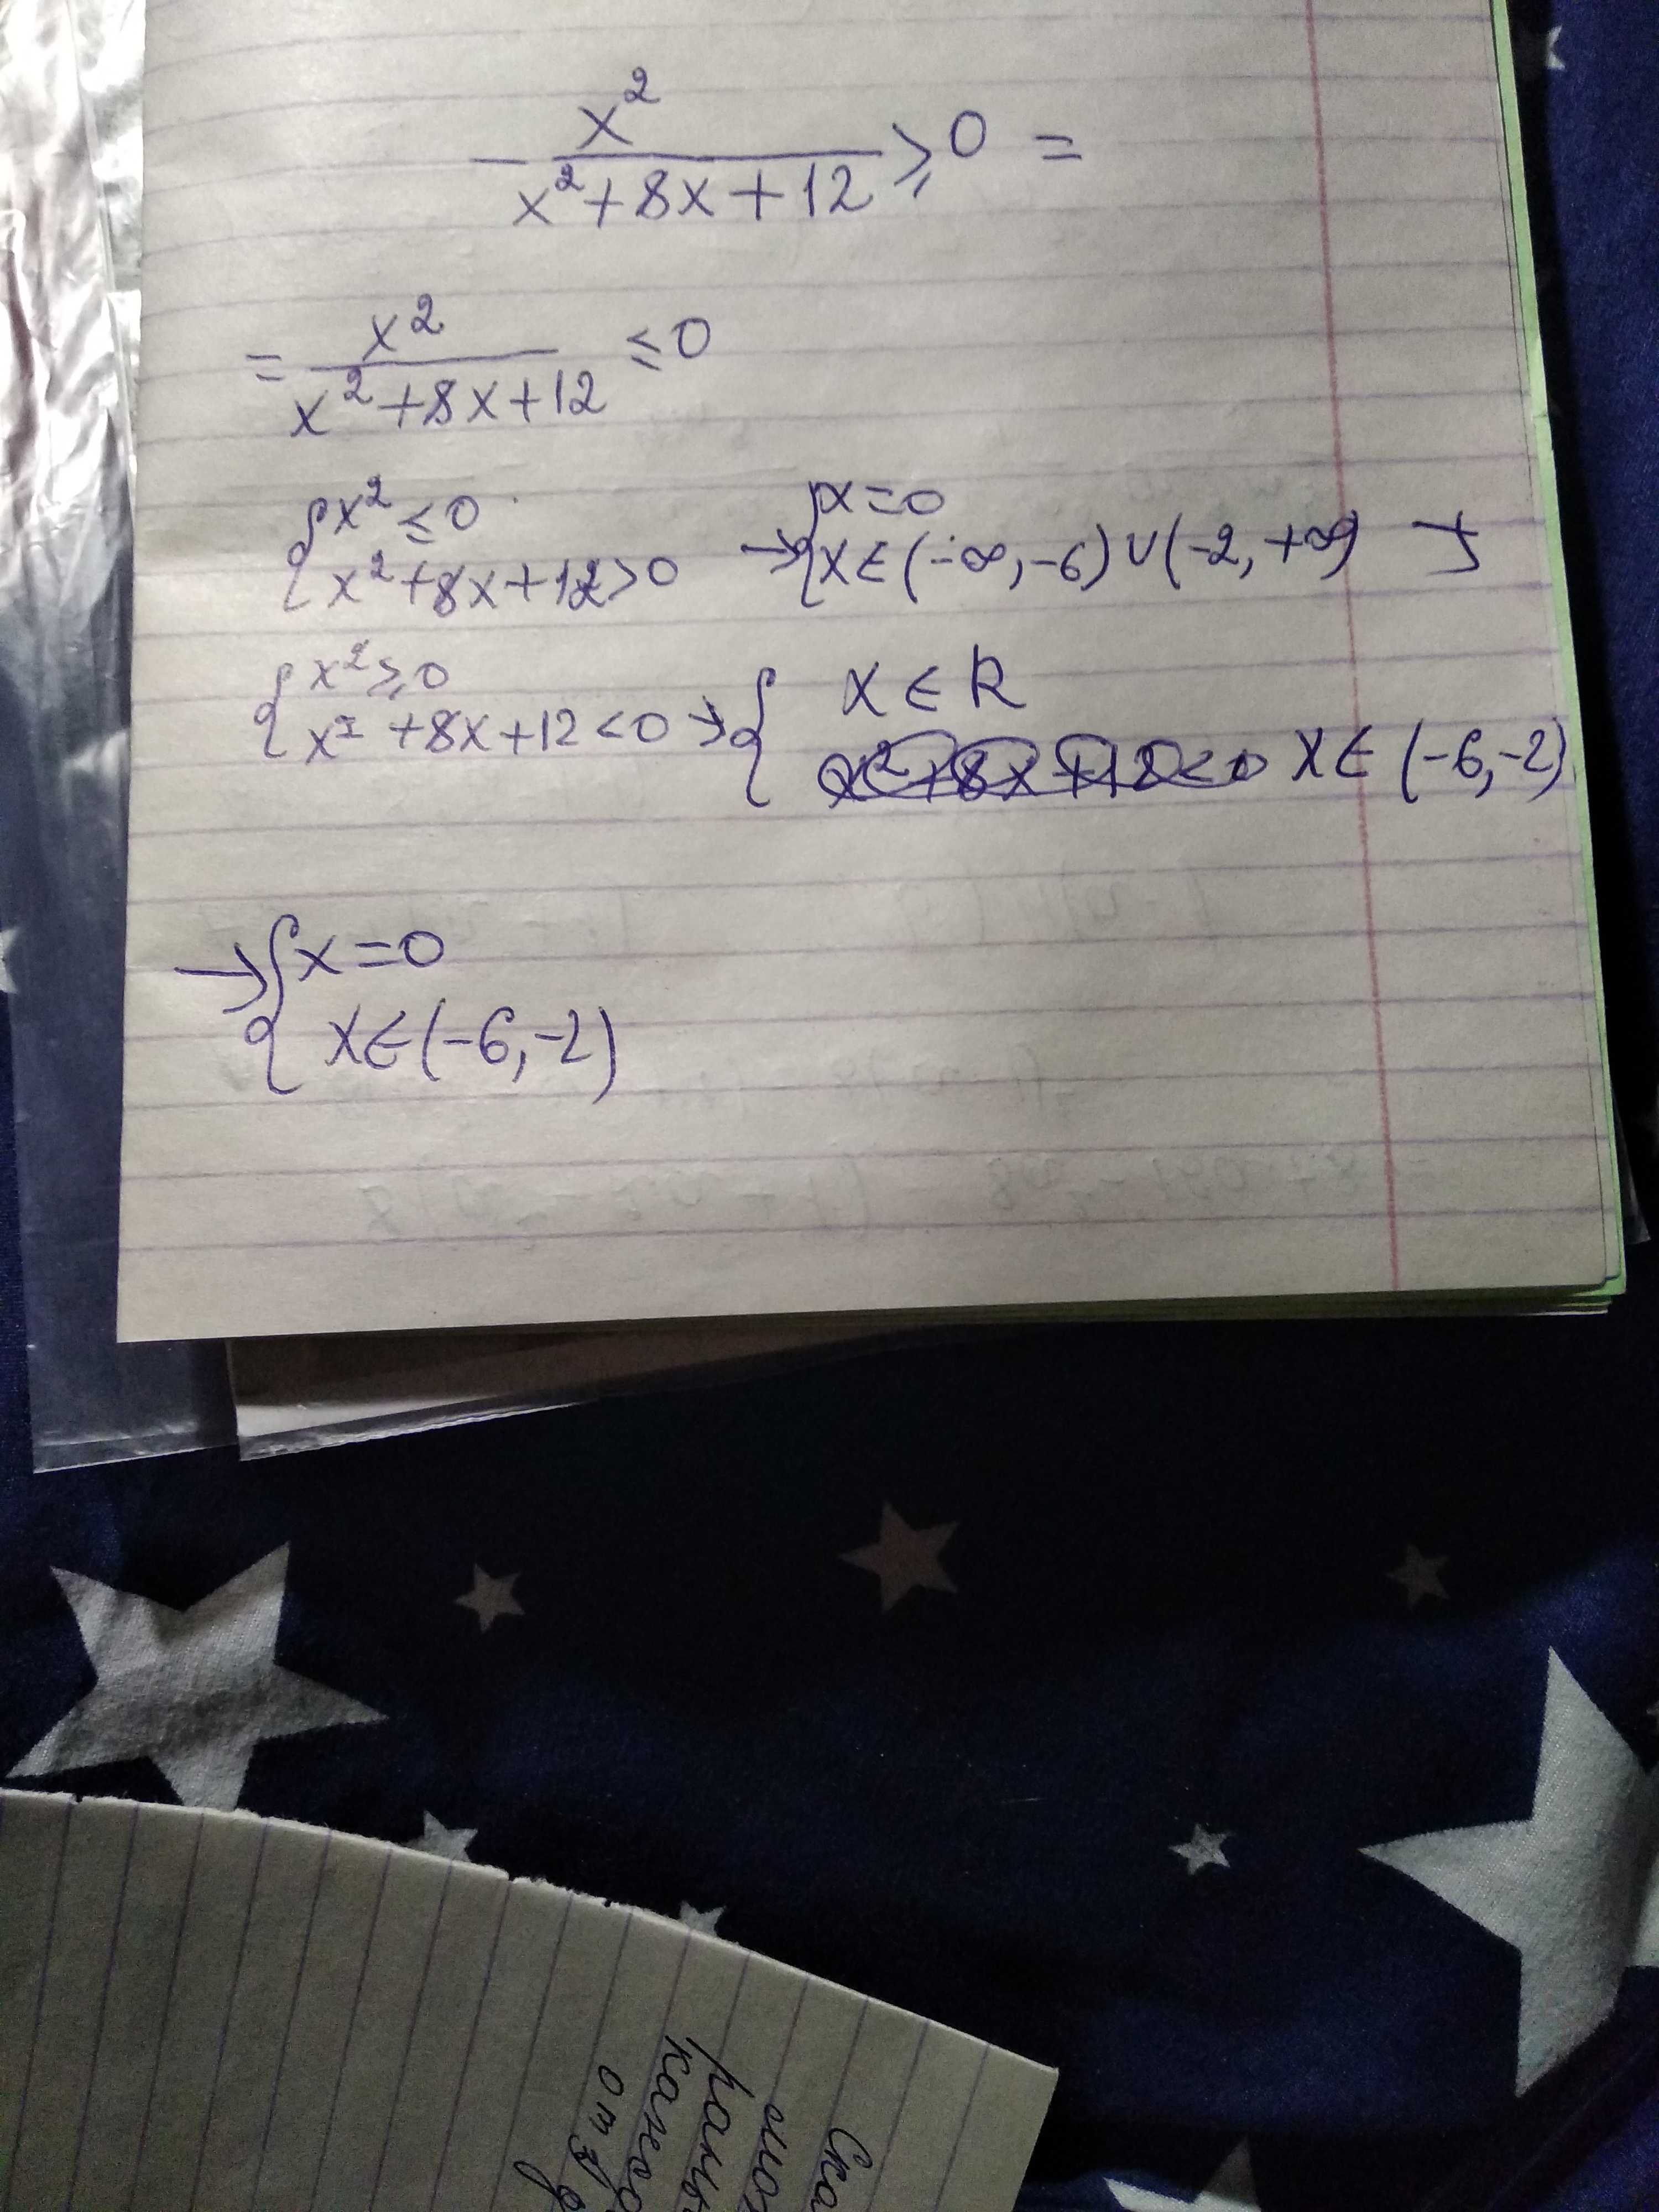 - x² / (x² + 8x + 12) ⩾ 0 =
= x² / (x² + 8x + 12) ≤ 0
{ x² ≤ 0 → { x = 0
x² + 8x + 12 > 0 x ∈ (-∞, -6) ∪ (-2, +∞) →
{ x² ⩾ 0 → { x ∈ R
x² + 8x + 12 < 0 x ∈ (-6, -2)
→ { x = 0
x ∈ (-6, -2)